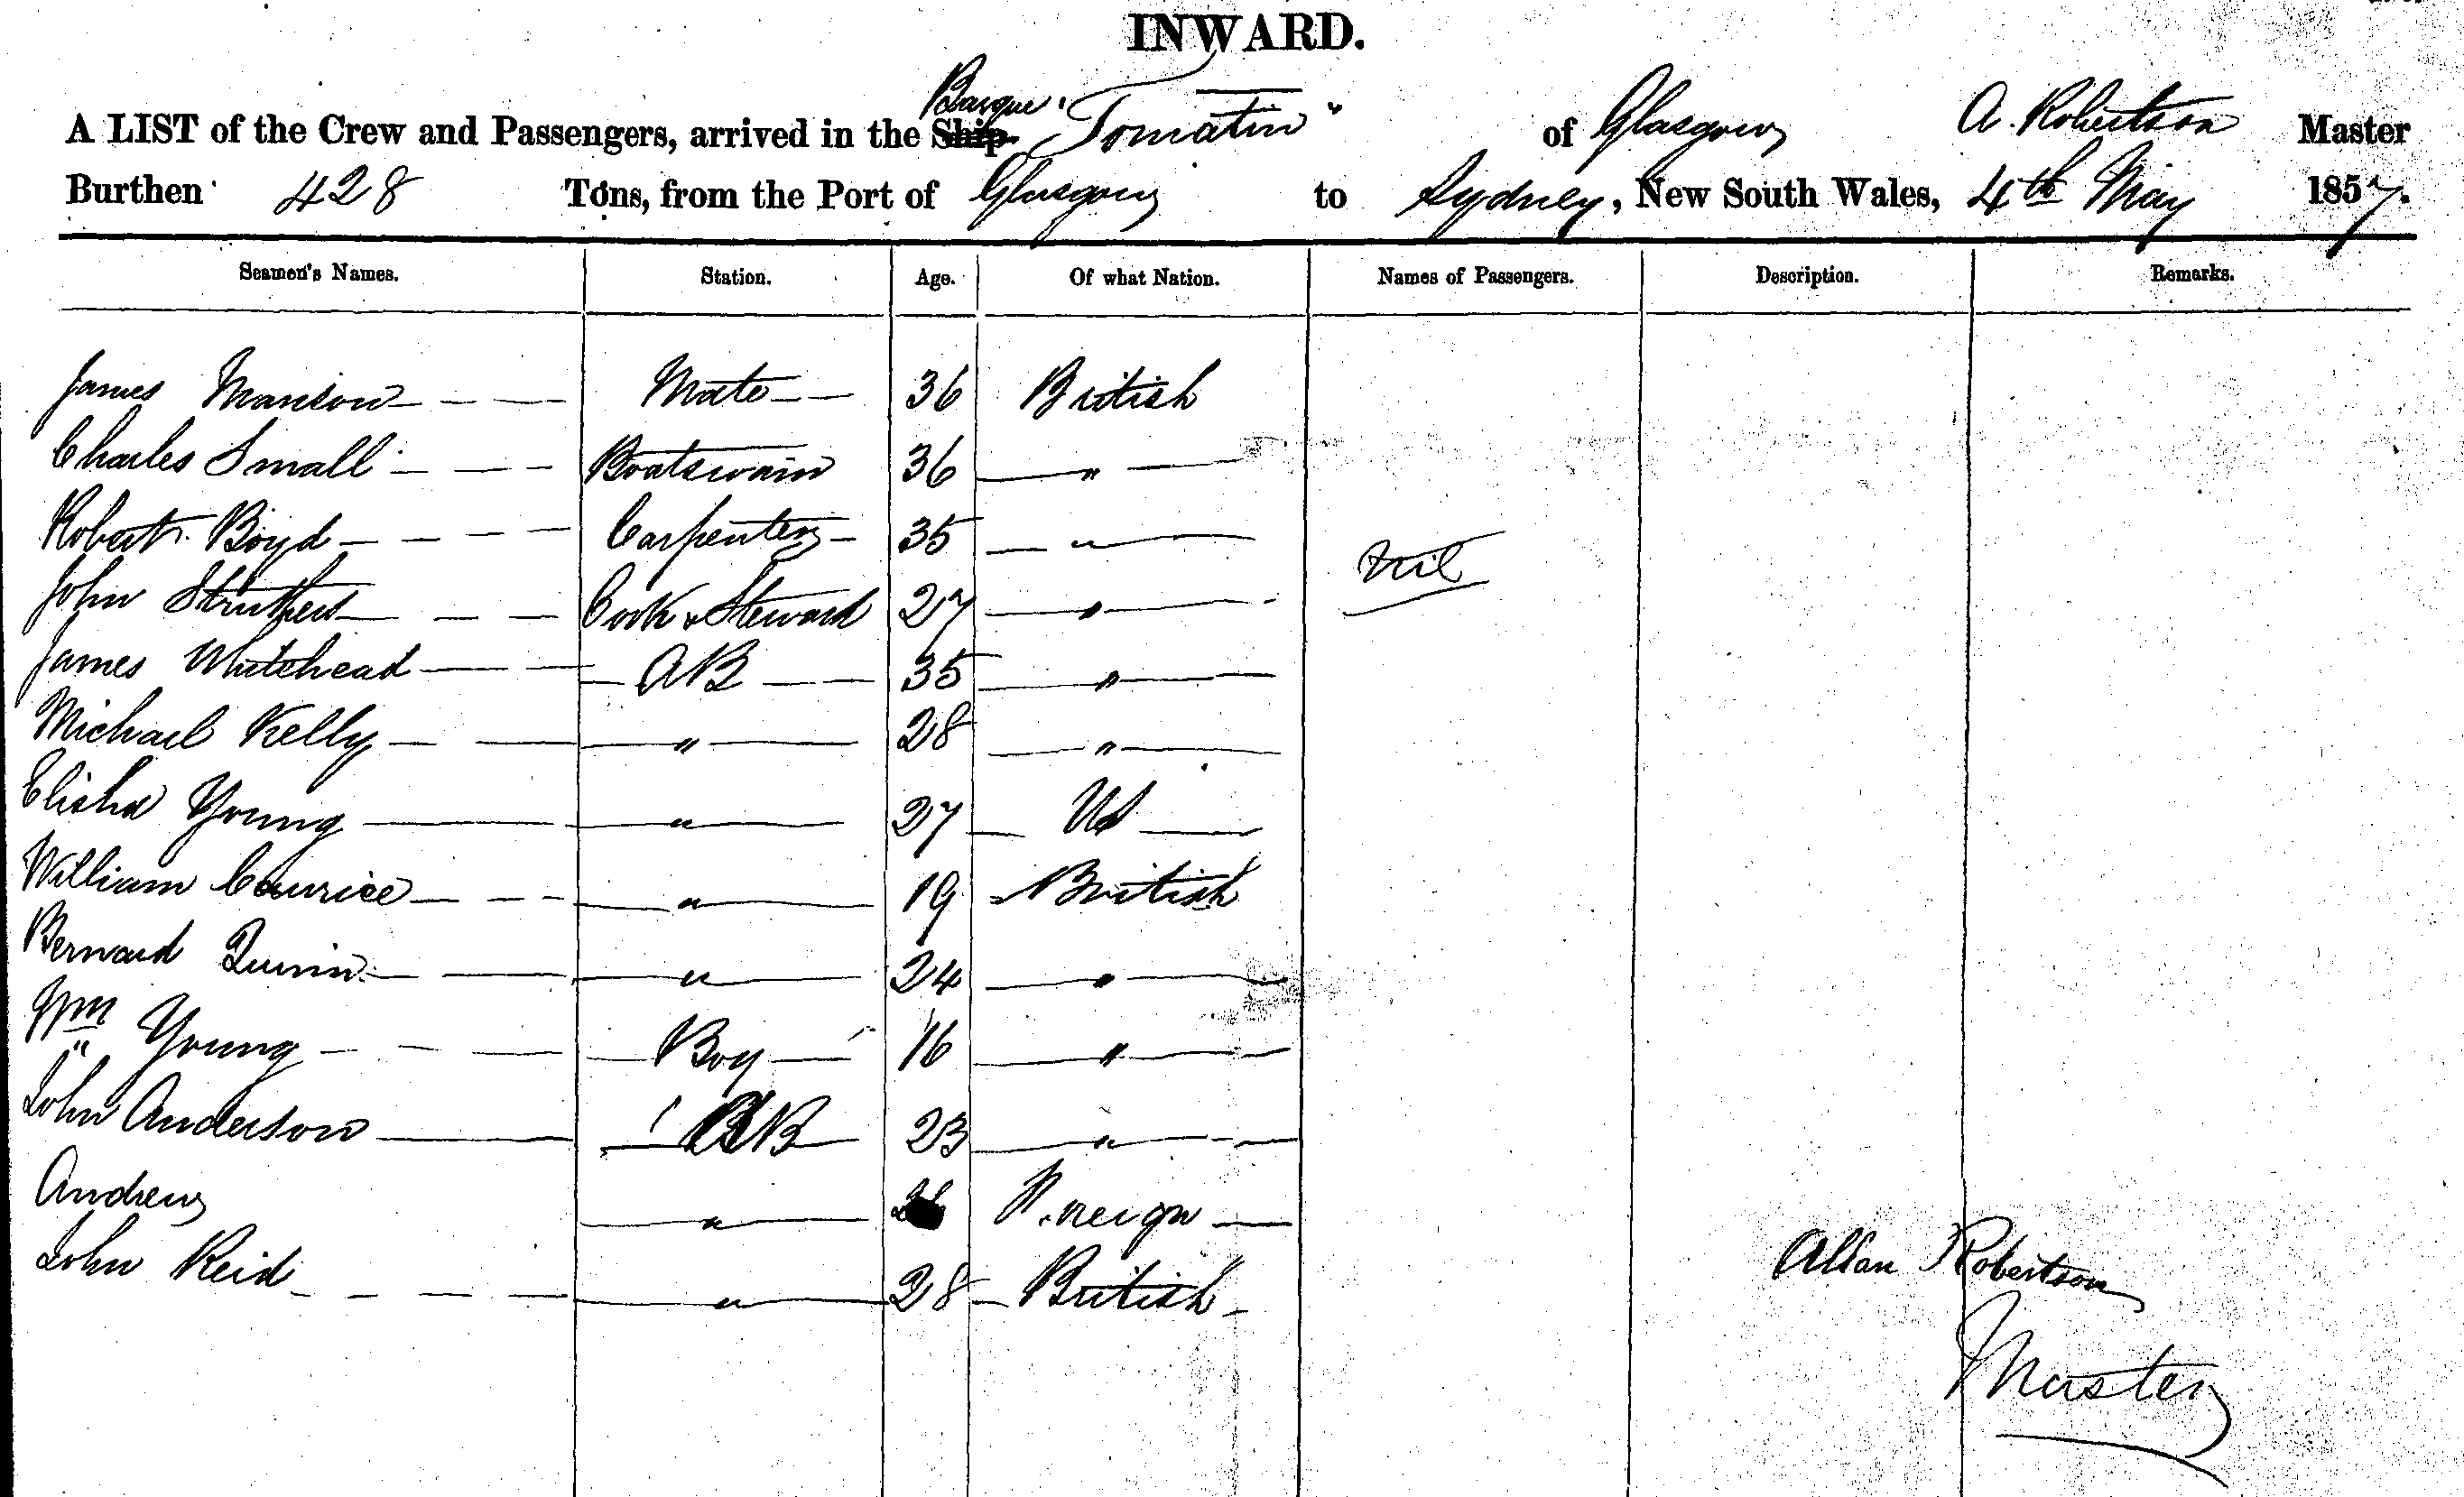 INWARD.
A LIST of the Crew and Passengers, arrived in the Ship Barque "Tomatin" of Glasgow A. Robertson Master
Burthen 428 Tons, from the Port of Glasgow to Sydney, New South Wales, 4th May 1857.
Seamen's Names. Station. Age. Of what Nation. Names of Passengers. Description. Remarks.
James Manson Mate 36 British
Charles Small Boatswain 36 "
Robert Boyd Carpenter 35 "
Nil
John Struthers Cook & Steward 27 "
James Whitehead AB 35 "
Michael Kelly " 28 "
Elisha Young " 27 US
William Caurice " 19 British
Bernard Quinn " 24 "
Wm Young Boy 16 "
John Anderson AB 23 "
Andrew "
John Reid " 28 British
Allan Robertson
Master